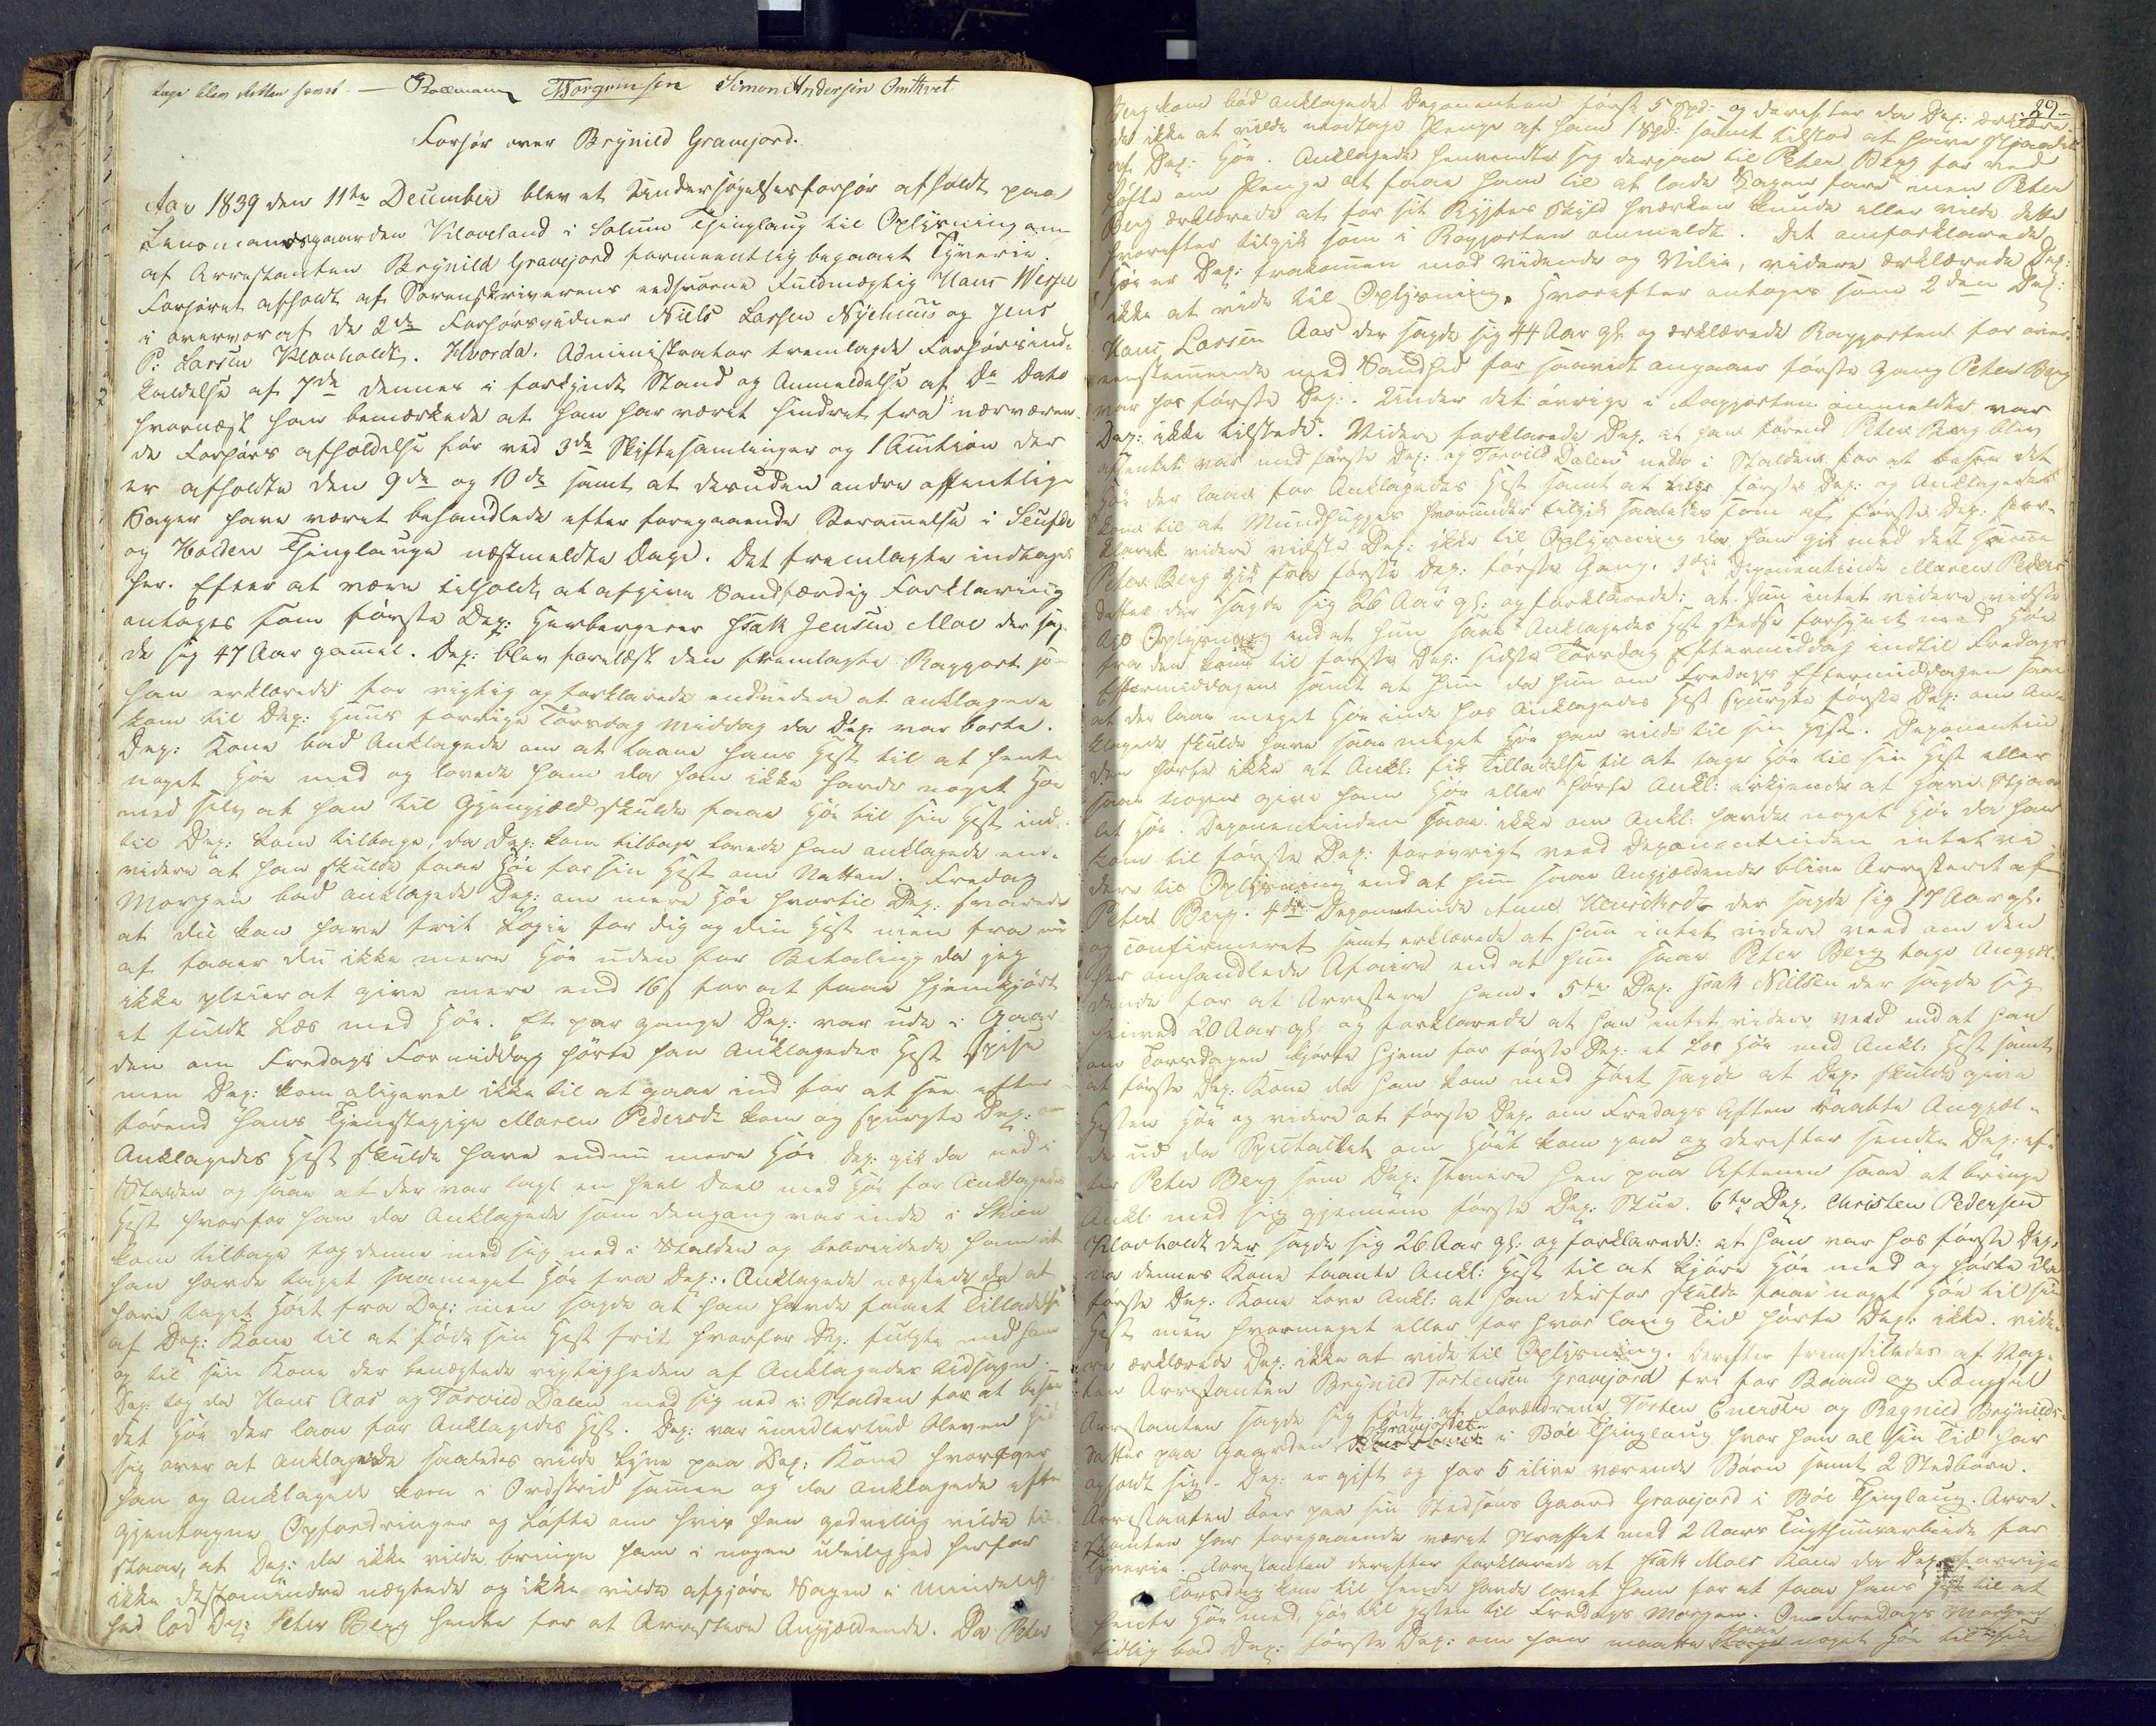 tage blev Retten hævet. — Rollmann Thorgrimsen Simon Andersen Omtvet
Forhør over Brynild Gravejord.
Aar 1839 den 11te December blev et Undersøgelsesforhør afholdt paa
Lensmandsgaarden Kloveland i Solum Thinglaug til Oplysning om
af Arrestanten Brynild Gravejord formeentlig begaaet Tyverie.
Forhøret afholdt af Sorenskriverens eedsvorne Fuldmægtig Hans
i overvær af de 2de Forhørsvidner Niels Larsen Nyehuus og Jens
P: Larsen Klovholdt. Hvorda. Administrator fremlagde Forhørsind-
kaldelse af 7de dennes i forkyndt Stand og Anmeldelse af Do Dato
hvornæst han bemærkede at han har været hindret fra nærværen-
de Forhørs afholdelse før ved 3de Skiftesamlinger og 1 Auction der
er afholdte den 9de og 10de samt at desuden andre offentlige
Sager have været behandlede efter foregaaende Berammelse i
og Holden Thinglauge næstmeldte Dage. Det fremlagte indtages
her. Efter at være tilholdt at afgive Sandfærdig Forklaring
antoges som første Dep: Herbergerer Isak Jensen Moe der sag-
de sig 47 Aar gammel. Dep: blev forelæst den fremlagte Rapport som
han erklærede for rigtig og forklarede endvidere at anklagede
kom til Dep: Huus forrige Torsdag Middag da Dep: var borte.
Dep: Kone bad Anklagede om at laane hans Hest til at hente
noget Høe med og lovede ham da han ikke havde noget Høe
med selv at han til Gjengjæld skulde faae Høe til sin Hest ind-
til Dep: kom tilbage, da Dep: kom tilbage lovede han anklagede end-
videre at han skulde faae Høe for sin Hest om Natten. Fredag
Morgen bad anklagede Dep: om mere Høe hvortil Dep: svarede
at du kan have frit Logie for dig og din Hest men fra nu
af faaer du ikke mere Høe uden for Betaling da jeg
ikke pleier at give mere end 16 ß for at faae hjemkjørt
et fuldt Læs med Høe. Et par gange Dep: var ude i Gaar-
den om Fredags Formiddag hørte han Anklagedes Hest spise
men Dep: kom aligevel ikke til at gaae ind for at see efter
førend hans Tjenestepige Maren Pedersd: kom og spurgte Dep: om
Anklagedes Hest skulde have endnu mere Høe. Dep: gik da ned i
Stalden og saae at der var lagt en heel Deel med Høe for Anklagedes
Hest hvorfor han da Anklagede som dengang var inde i Skien
kom tilbage tog denne med sig ned i Stalden og bebreidede ham at
han havde taget saameget Høe fra Dep:. Anklagede nægtede da at
have taget Høet fra Dep: men sagde at han havde faaet Tilladelse
af Dep: Kone til at føde sin Hest frit hvorfor Dep: fulgte med ham
op til sin Kone der benægtede rigtigheden af Anklagedes Udsagn.
Dep: tog da Hans Aas og Torvild Dalen med sig ned i Stalden for at besee
det Høe der laae for Anklagedes Hest. Dep: var imidlertid bleven
sig over at Anklagede saaledes vilde lyve paa Dep: Kone hvorover
han og Anklagede kom i Ordstrid sammen og da Anklagede efter
gjentagne Opfordringer og Løfte om hvis han godvillig vilde til-
staae, at Dep: da ikke vilde bringe ham i nogen uleilighed herfor
ikke destomindre nægtede og ikke vilde afgjøre Sagen i Mindelig-
hed lod Dep: Peter Berg hente for at Arrestere Angjældende. Da Peter
29
Berg kom bød Anklagede Deponenten først 5 Spd: og derefter da Dep: erklære-
de ikke at vilde modtage Penge af ham 1 Spd: samt tilstod at have stjaalet
af Dep: Høe. Anklagede henvendte sig derpaa til Peter Berg for ved
Løfte om Penge at faae ham til at lade Sagen fare men Peter
Berg erklærede at for sit Rygtes skyld hverken kunde eller vilde dette
hvorefter tilgik som i Rapporten anmeldt. Det omforklarede
Høe er Dep: frakommen mod vidende og Vilie, videre erklærede Dep:
ikke at vide til Oplysning. Hvorefter antoges som 2den Dep:
Hans Larsen Aas der sagde sig 44 Aar gl. og erklærede Rapporten for over-
eenstemmende med Sandhed for saavidt angaaer første Gang Peter Berg
var hos første Dep:. Under det øvrige i Rapporten anmeldte var
Dep: ikke tilstede. Videre forklarede Dep. at han førend Peter Berg blev
afhentet var med første Dep: og Torvild Dalen nede i Stalden for at besee det
Høe der laae for Anklagedes Hest samt at første Dep: og Anklagede
kom til at Mundhugges hvorunder tilgik saaledes som af første Dep: for-
klaret videre vidste Dep: ikke til Oplysning da han gik med det samme
Peter Berg gik fra første Dep: første Gang. 3die Deponentinde Maren Peders
datter der sagde sig 26 Aar gl: og forklarede: at hun intet videre vidste
til Oplysning end at hun saae Anklagedes Hest stedse forsynet med Høe
fra den kom til første Dep: sidste Torsdag Eftermiddag indtil Fredags
Eftermiddagen samt at hun da hun om Fredags Eftermiddagen saae
at der laae meget Høe inde hos Anklagedes Hest spurgte første Dep: om An-
klagede skulde have saa meget Høe han vilde til sin Hest. Deponentin
den hørte ikke at Ankl: fik Tilladelse til at tage Høe til sin Hest eller
saae nogen give ham Høe eller hørte Ankl: erkjende at have stjaa
let Høe. Deponentinden saae ikke om Ankl: havde noget Høe da han
kom til første Dep: forøvrigt veed Deponentinden intet vi
dere til Oplysning end at hun saae Angjældende blive Arresteret af
Peter Berg. 4de Deponentinde Anne der sagde sig 17 Aar gl.
og confirmeret samt erklærede at hun intet videre veed om den
her omhandlede Afaire end at hun saae Peter Berg tage Angjæl-
dende for at Arrestere ham. 5te Dep: Isak Nielsen der sagde sig
henved 20 Aar gl: og forklarede at han intet videre veed end at han
om Torsdagen kjørte hjem for første Dep: et Læs Høe med Ankl: Hest samt
at første Dep: Kone da han kom med Høet, sagde at Dep: skulde give
Hesten Høe og videre at første Dep: om Fredags Aften raabte Angjæl-
de ud da Spectaklet om Høet kom paa og derefter sendte Dep: ef-
ter Peter Berg som Dep: senere hen paa Aftenen saae at bringe
Ankl: med sig gjennem første Dep: Stue. 6te Dep. Christen Pedersen
Klovholdt der sagde sig 26 Aar gl: og forklarede: at han var hos første Dep:
da dennes Kone laante Ankl: Hest til at kjøre Høe med og hørte da
første Dep: Kone love Ankl: at han derfor skulde faae noget Høe til sin
Hest men hvormeget eller for hvor lang Tid hørte Dep: ikke. vide-
re erklærede Dep: ikke at vide til Oplysning. Derefter fremstilledes af Vag-
ten Arrestanten Brynild Torstensen Gravejord fri for Baand og Fængsel
Arrestanten sagde sig født af Forældrene Torsten Enersen og Ragnild Brynilds-
datter paa Gaarden Gravejordet i Bøe Thinglaug hvor han al sin Tid har
opholdt sig. Dep: er gift og har 5 ilive værende Børn samt 2 Stedbørn.
Arrestanten boer paa sin Stedsøns Gaard Gravejord i Bøe Thinglaug. Arre-
stanten har foregaaende været straffet med 2 Aars Tugthuusarbeide for
Tyverie. Arrestanten derefter forklarede at Isak Moes Kone da Dep: forrige
Torsdag kom til hende havde lovet ham for at faae hans Hest til at
hente Høe med, Høe til Hesten til Fredags Morgen. Om Fredags Morgen
tidlig bad Dep: første Dep: om han maatte faae noget Høe til sin